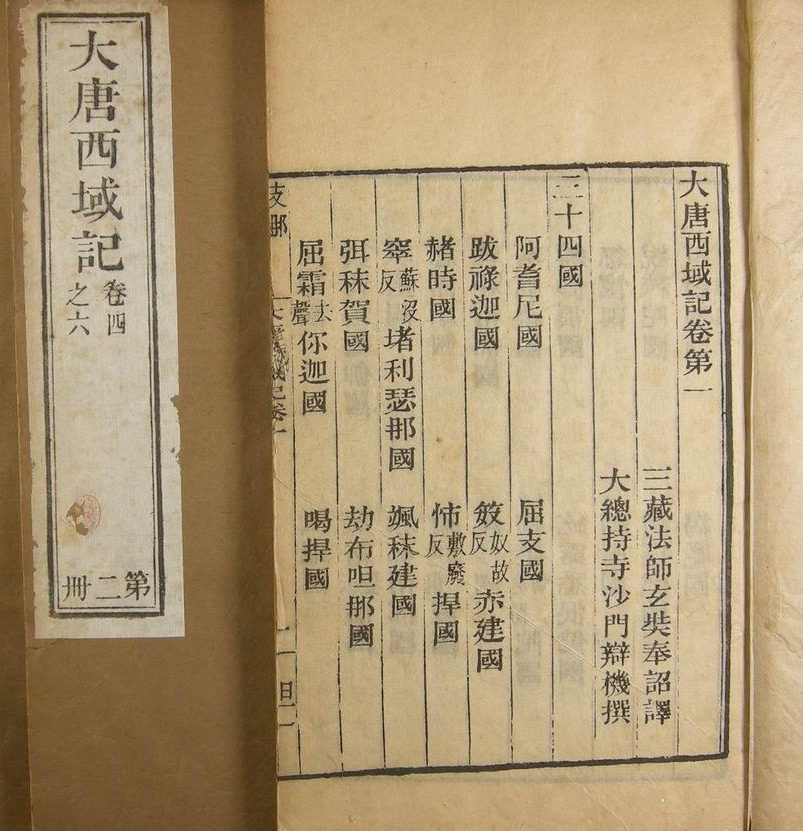 大唐西域記卷第一
三藏法師玄奘奉詔譯
大總持寺沙門辯機撰
三十四國
阿耆尼國 屈支國
跋祿迦國 笯奴故反赤建國
赭時國 㤄敷廢反捍國
窣蘇沒反堵利瑟那國 颯秣建國
弭秣賀國 劫布呾那國
屈霜去聲你迦國 喝捍國
支那
大唐西域記
卷四
之六
第二冊